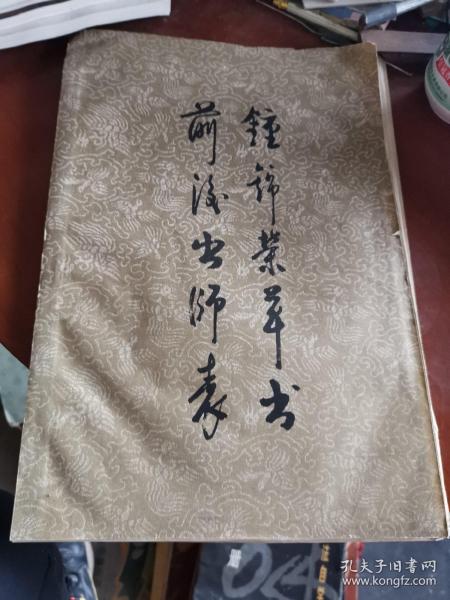 鍾錦榮草书
前後出师表
孔夫子旧书网
www.kongfz.com